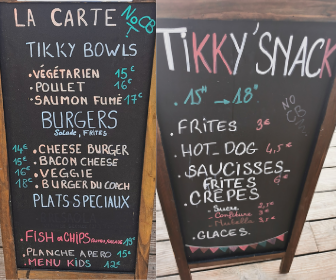 LA CARTE
NO CB
TIKKY BOWLS
.VÉGÉTARIEN 15€
.POULET 16€
.SAUMON FUMÉ 17€
BURGERS
Salade, FRITES
14€ .CHEESE BURGER
15€ .BACON CHEESE
16€ .VEGGIE
18€ .BURGER DU COACH
PLATS SPECIAUX
.FISH & CHIPS 18€
.PLANCHE APERO 15€
.MENU KIDS 12€
TIKKY'SNACK
.15H → 18H
NO CB
.FRITES 3€
.HOT-DOG 4,5€
.SAUCISSES_
FRITES 6€
.CRÊPES
Sucre 2,5€
Confiture 3€
Nutella
.GLACES.